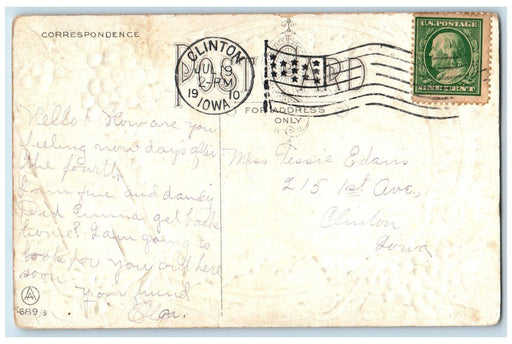 CORRESPONDENCE
POST CARD
FOR ADDRESS
ONLY
CLINTON
JUL 9
2-PM
1910
IOWA
U.S. POSTAGE
ONE CENT
Hello! How are you
feeling now days after
the fourth.
I am fine and dandy
Did Emma get back
home? I am going to
look for you out here
soon. your friend
Miss Tessie Edens
215 1st Ave.,
Clinton
Iowa
A
689/3